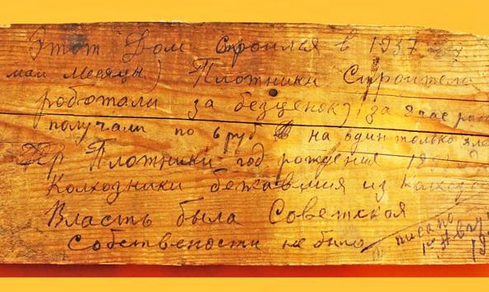 Этот Дом строился в 1957
май месяци) Плотники строители
роботали за безценок) за
получали по 6 руб на один только
Плотники год рождения
Колхозники бежавшия из
Власть была Советская
Собствености не было писано